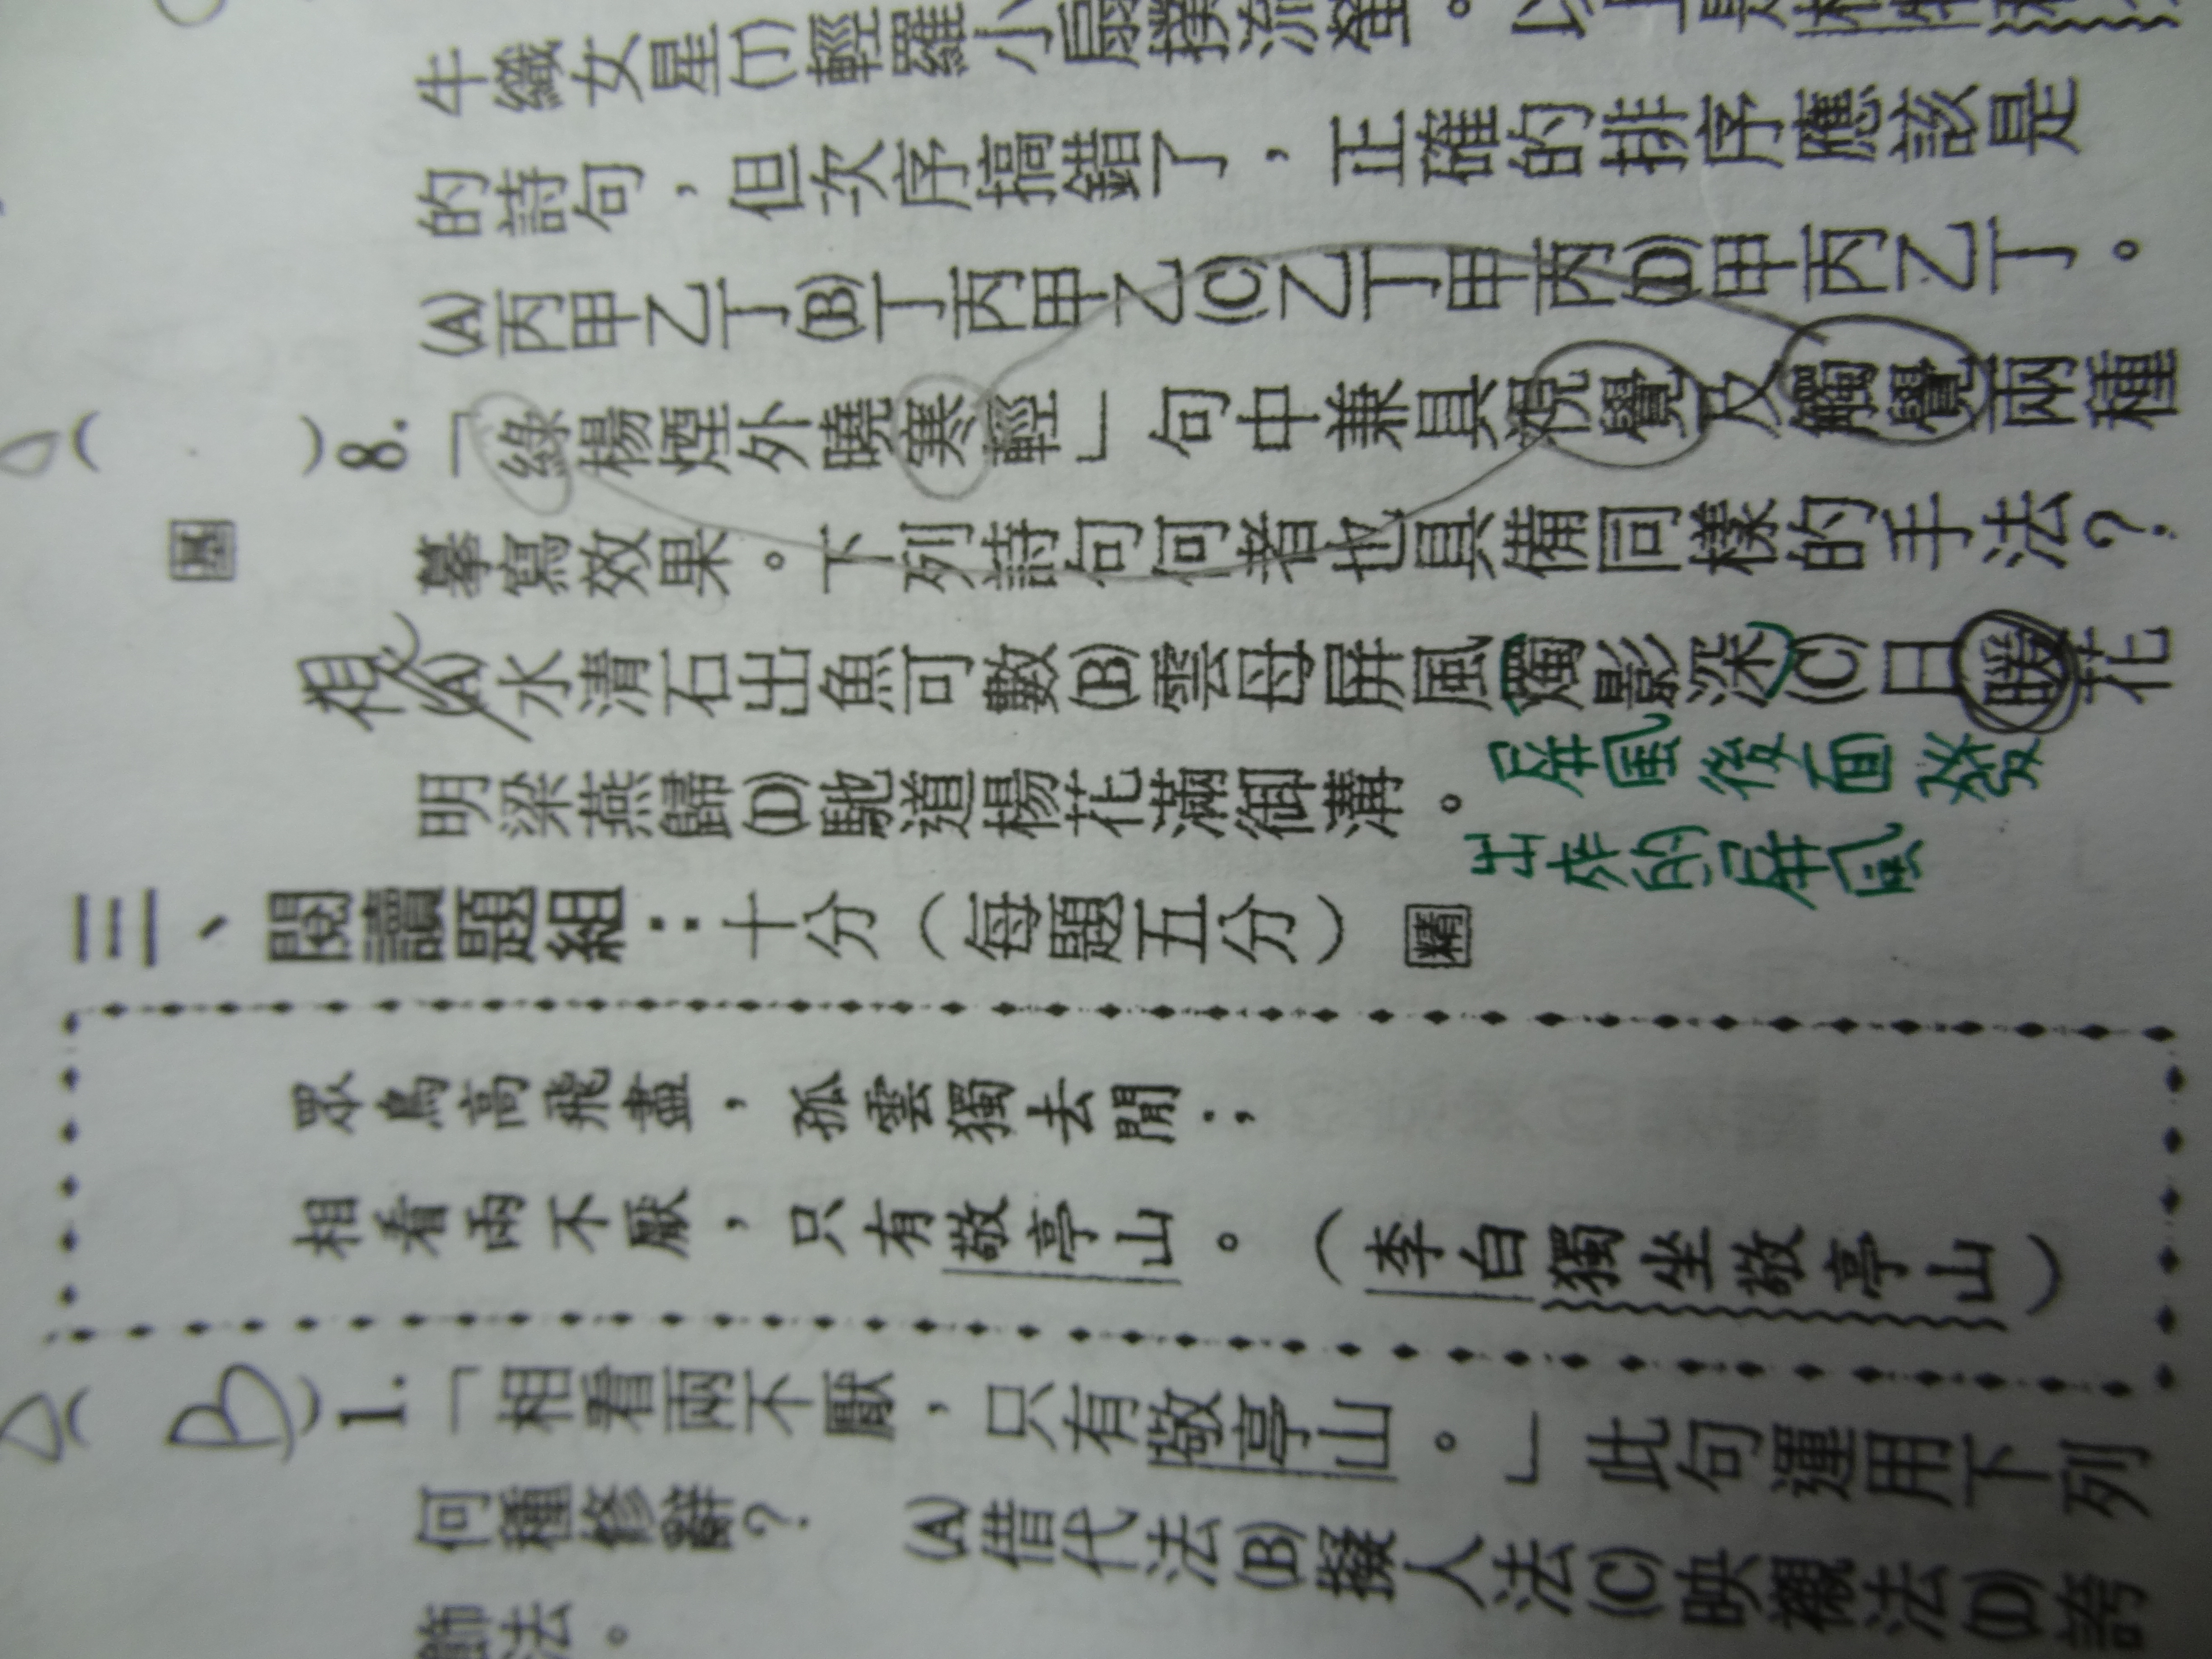 牛織女星(丁)輕羅小扇撲流螢。以上是杜牧
的詩句，但次序搞錯了，正確的排序應該是
(A)丙甲乙丁(B)丁丙甲乙(C)乙丁甲丙(D)甲丙乙丁。
( )8.「綠楊煙外曉寒輕」句中兼具視覺及觸覺兩種
摹寫效果。下列詩句何者也具備同樣的手法？
視
(A)水清石出魚可數(B)雲母屏風燭影深(C)日暖花
明梁燕歸(D)馳道楊花滿御溝。
屏風後面發
出來的屏風
三、閱讀題組：十分（每題五分） 精
眾鳥高飛盡，孤雲獨去閒；
相看兩不厭，只有敬亭山。（李白獨坐敬亭山）
( B )1.「相看兩不厭，只有敬亭山。」此句運用下列
何種修辭？ (A)借代法(B)擬人法(C)映襯法(D)誇
飾法。